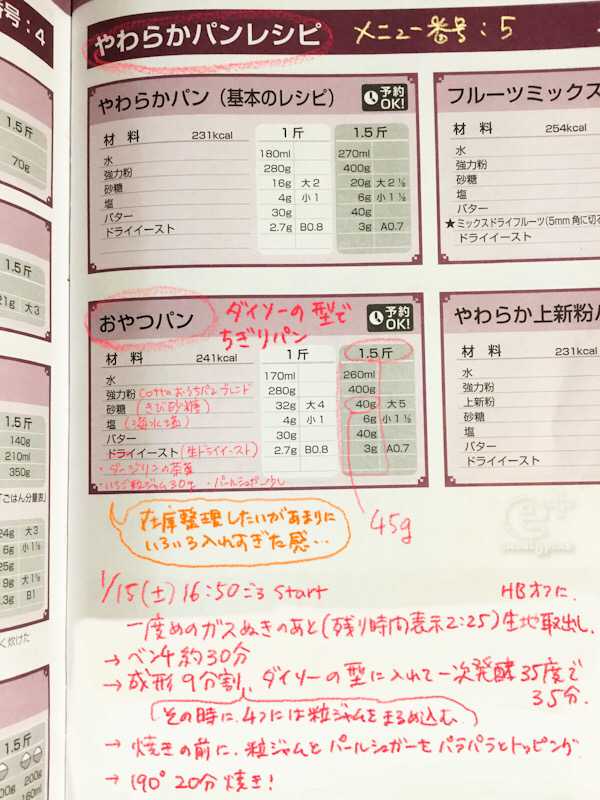 号：4
やわらかパンレシピ メニュー番号：5
やわらかパン（基本のレシピ） 予約OK!
材料 231kcal 1斤 1.5斤
水 180ml 270ml
強力粉 280g 400g
砂糖 16g 大2 20g 大2½
塩 4g 小1 6g 小1½
バター 30g 40g
ドライイースト 2.7g B0.8 3g A0.7
フルーツミックス
材料 254kcal
水
強力粉
砂糖
塩
バター
★ミックスドライフルーツ(5mm角に切る
ドライイースト
おやつパン ダイソーの型で 予約OK!
ちぎりパン
材料 241kcal 1斤 1.5斤
水 170ml 260ml
強力粉 cottaおうちパンブレンド 280g 400g
砂糖 (きび砂糖) 32g 大4 40g 大5
塩 (海水塩) 4g 小1 6g 小1½
バター 30g 40g
ドライイースト (生ドライイースト) 2.7g B0.8 3g A0.7
・ダージリンの茶葉
・いちご粒ジャム30g ・パールシュガー少し
45g
やわらか上新粉パ
材料 231kcal
水
強力粉
上新粉
砂糖
塩
バター
ドライイースト
在庫整理したいがあまりに
いろいろ入れすぎた感…
1/15(土) 16:50ごろ start HBオフに、
一度めのガスぬきのあと(残り時間表示2:25)生地取出し、
→ベンチ約30分
→成形 9分割、ダイソーの型に入れて一次発酵35度で
35分、
(その時に、4つには粒ジャムをまるめ込む)
→焼きの前に、粒ジャムとパールシュガーをパラパラとトッピング
→190° 20分焼き！
1.5斤
70g
1.5斤
21g 大3
1.5斤
140g
210ml
350g
「ごはん分量表」
24g 大3
6g 小1½
9g 大1½
.3g B1
く炊けた
1.5斤
200g 200g
160ml